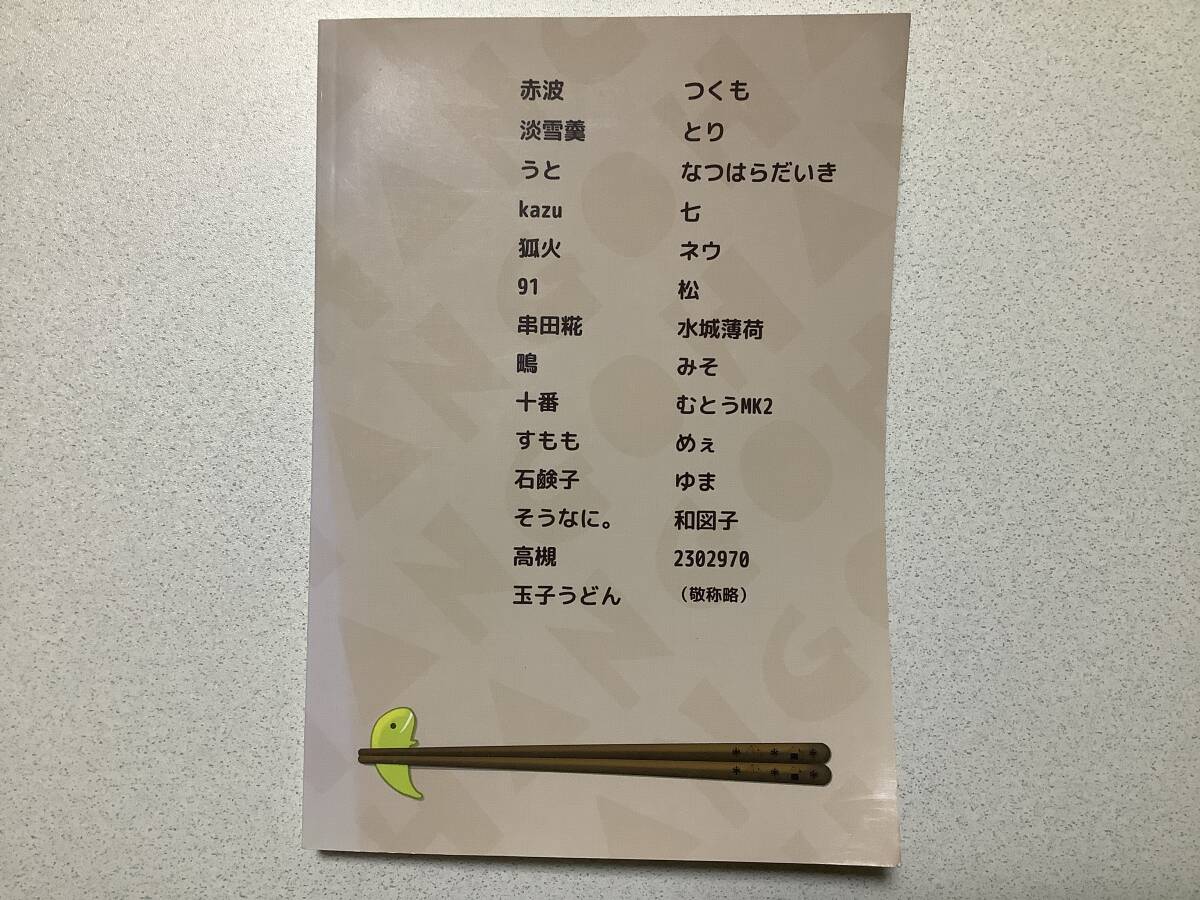 赤波
淡雪羹
うと
kazu
狐火
91
串田糀
鴫
十番
すもも
石鹸子
そうなに。
高槻
玉子うどん
つくも
とり
なつはらだいき
七
ネウ
松
水城薄荷
みそ
むとうMK2
めぇ
ゆま
和図子
2302970
（敬称略）